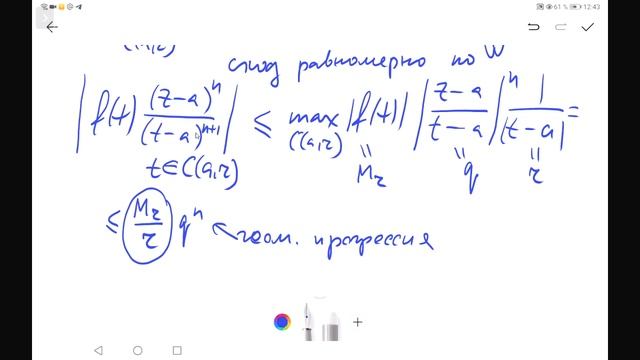 61 % 12:43
C(a,r)
сход равномерно по W
| f(t) (z-a)^n / (t-a)^{n+1} | ≤ max_{C(a,r)} |f(t)| | (z-a) / (t-a) |^n 1 / |t-a| =
t∈C(a,r) || M_r || q || r
≤ M_r / r q^n ← геом. прогрессия